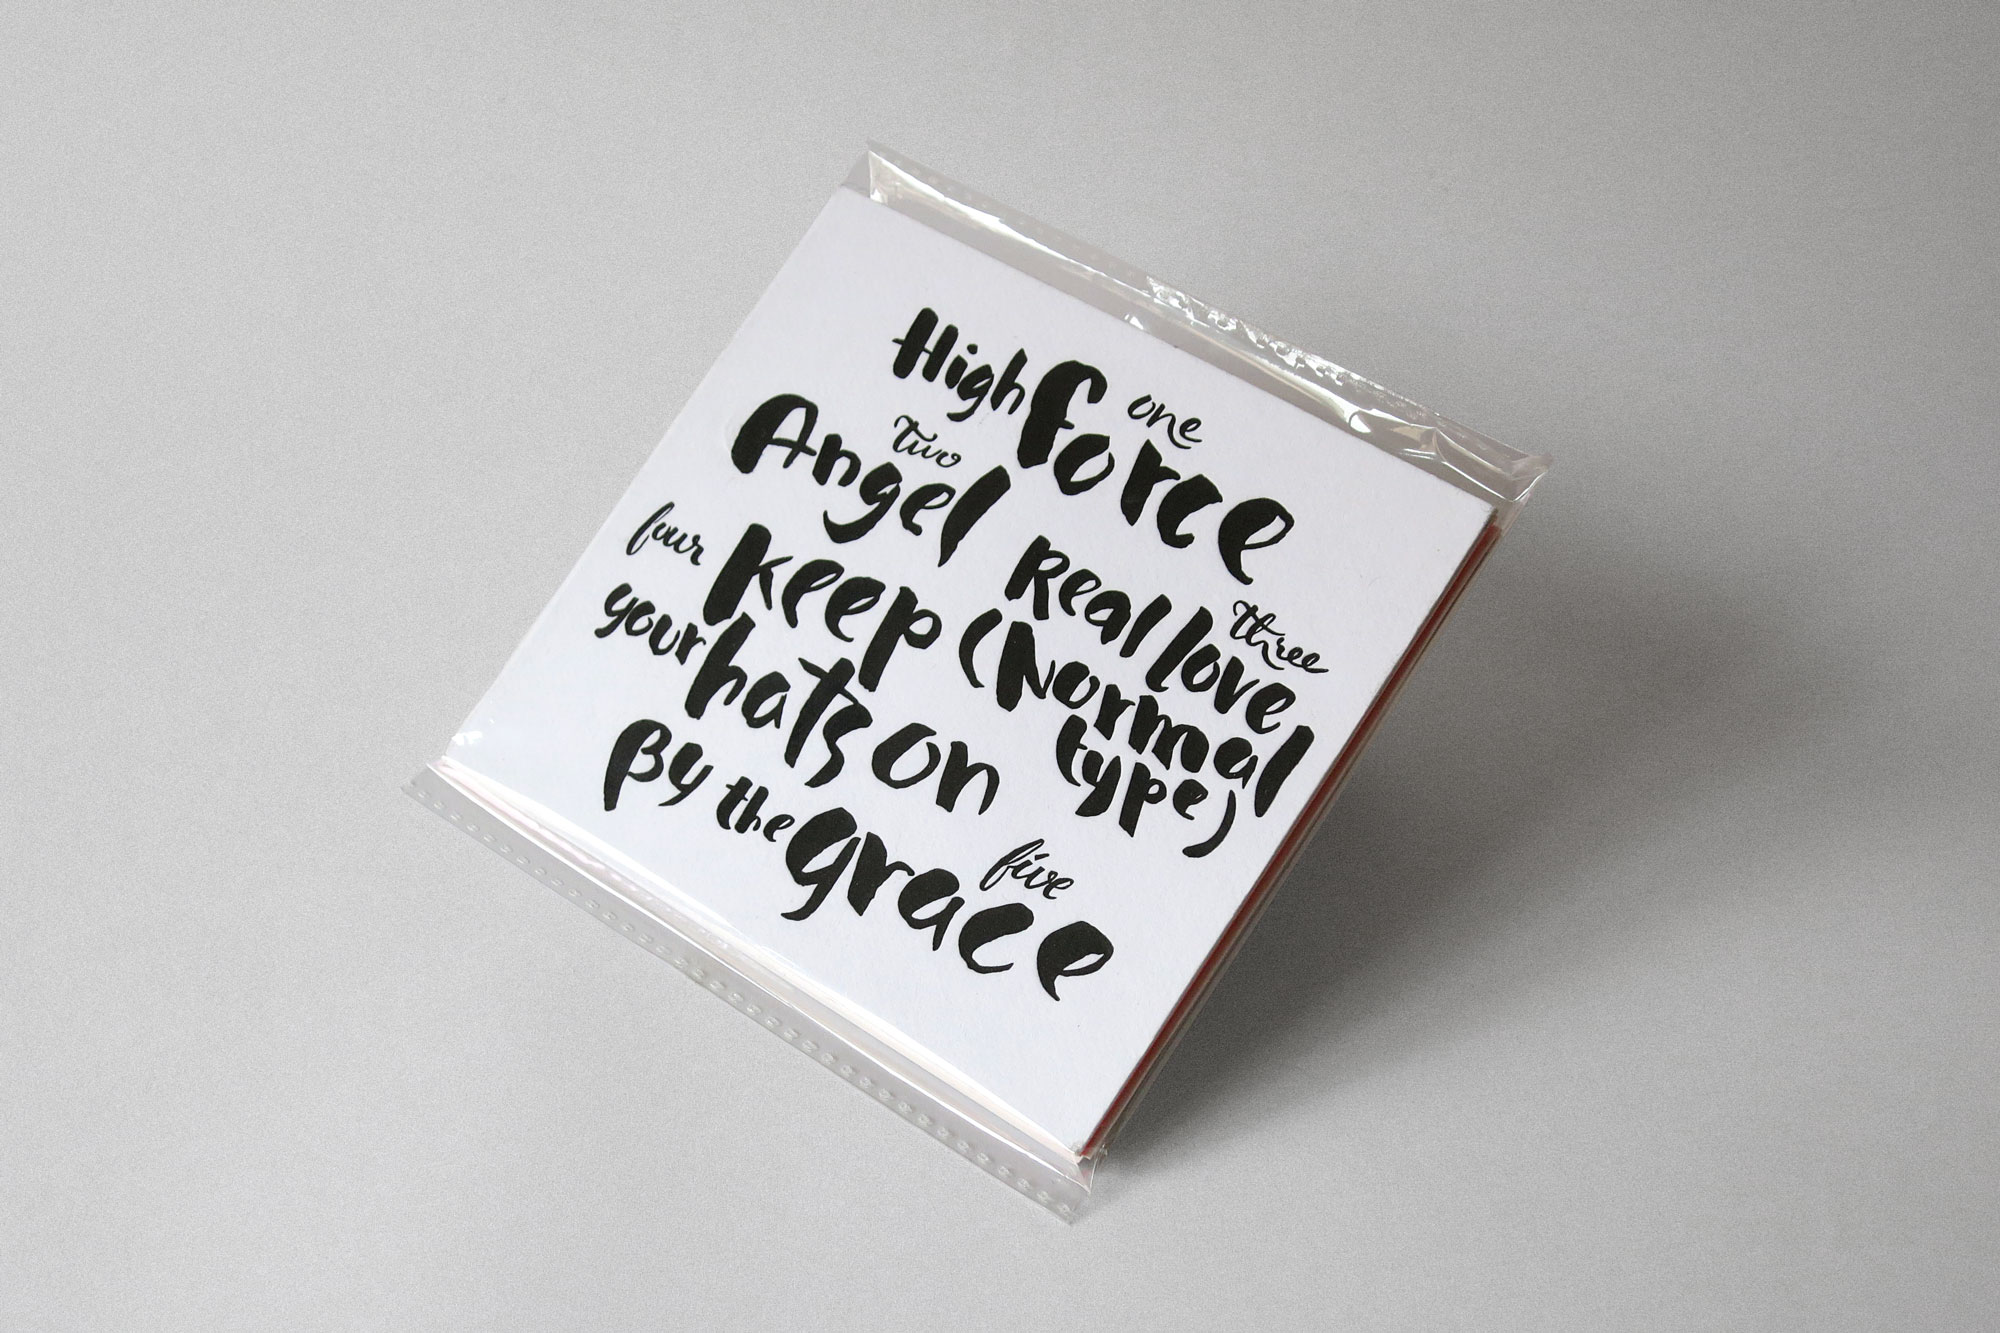 High force one
Angel two
Real love three
(Normal
type)
four Keep
your hats on
By the grace five